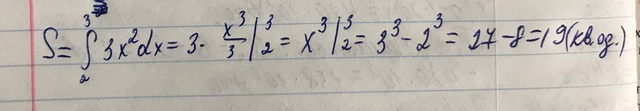 S = ∫₂³ 3x²dx = 3 · x³/3 |₂³ = x³ |₂³ = 3³ - 2³ = 27 - 8 = 19 (кв.од.)